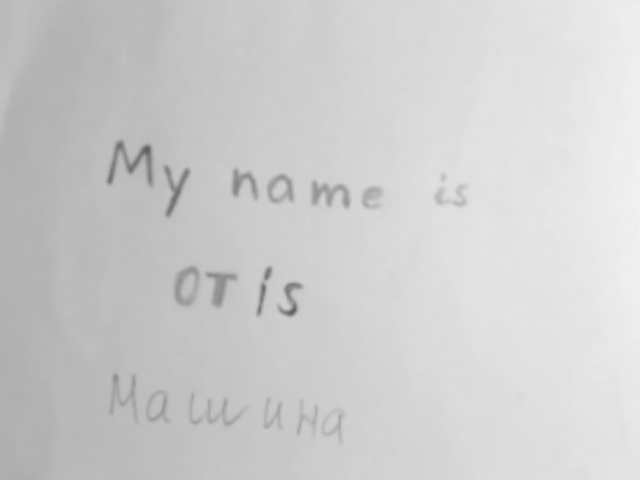 My name is
OTis
Машина